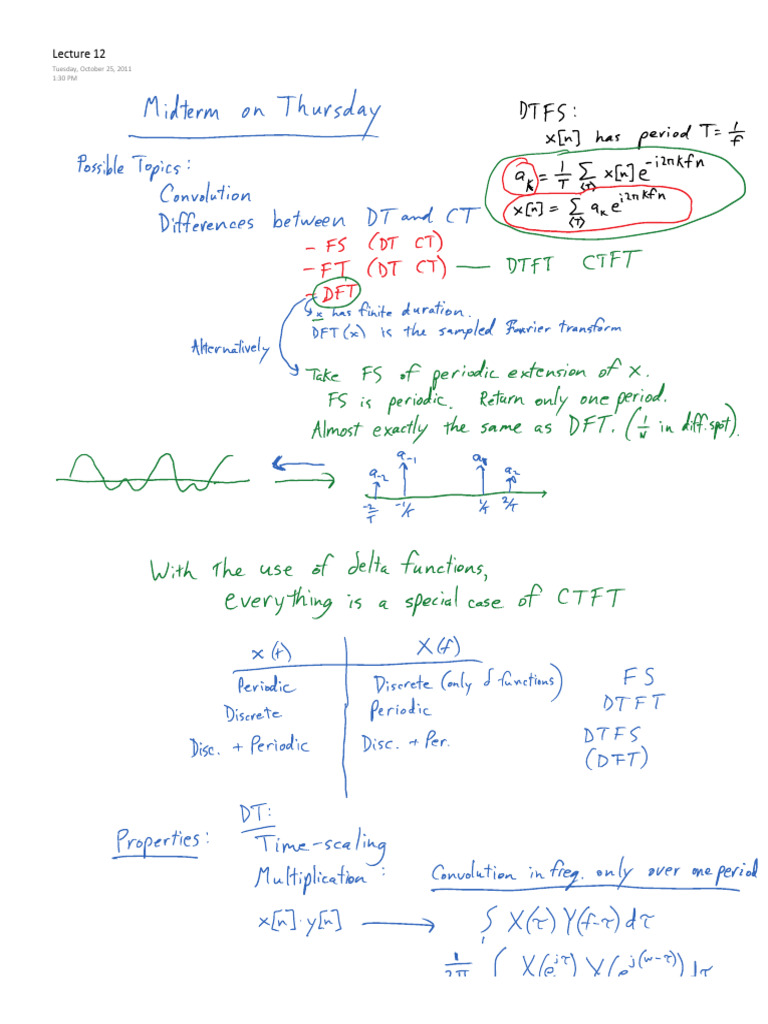 Lecture 12
Tuesday, October 25, 2011
1:30 PM
Midterm on Thursday
DTFS:
x[n] has period T = 1/f
a_k = 1/T Σ_<T> x[n] e^{-i2πkfn}
x[n] = Σ_<T> a_k e^{i2πkfn}
Possible Topics:
Convolution
Differences between DT and CT
- FS (DT CT)
- FT (DT CT) — DTFT CTFT
- DFT
x has finite duration.
DFT(x) is the sampled Fourier transform
Alternatively
Take FS of periodic extension of x.
FS is periodic. Return only one period.
Almost exactly the same as DFT. (1/N in diff. spot).
a_-2 a_-1 a_2
-2/T -1/T 1/T 2/T
With the use of delta functions,
everything is a special case of CTFT
x(t) X(f)
Periodic Discrete (only δ functions) FS
Discrete Periodic DTFT
Disc. + Periodic Disc. + Per. DTFS
(DFT)
Properties: DT:
Time-scaling
Multiplication: Convolution in freq. only over one period
x[n]·y[n] → ∫ X(τ) Y(f-τ) dτ
1/2π ∫ X(e^{jτ}) Y(e^{j(w-τ)}) dτ